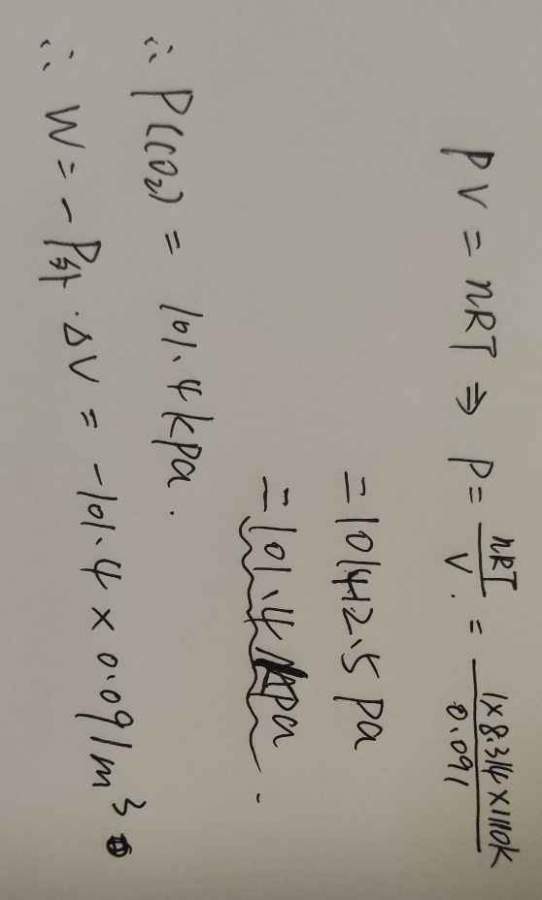 PV = nRT ⇒ P = nRT/V. = 1×8.314×1110K/0.091
= 101412.5 pa
= 101.4 kpa.
∴ P(CO₂) = 101.4 kpa.
∴ W = - P外 · ΔV = -101.4 × 0.091m³